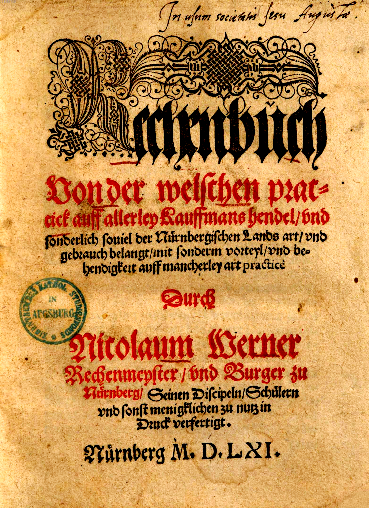 In usum societatis Jesu Augustæ.
Rechenbuch
Von der welschen prac⸗
tick auff allerley Kauffmans hendel/ vnd
sonderlich souiel der Nürnbergischen Lands art/ vnd
gebrauch belangt/ mit sonderm vorteyl/ vnd be⸗
hendigkeit auff mancherley art practicē
Durch
Nicolaum Werner
Rechenmeyster/ vnd Burger zu
Nürnberg/ Seinen Discipeln/ Schülern
vnd sonst menigklichen zu nutz in
Druck verfertigt.
IN
AUGSBURG
Nürnberg M. D. LXI.